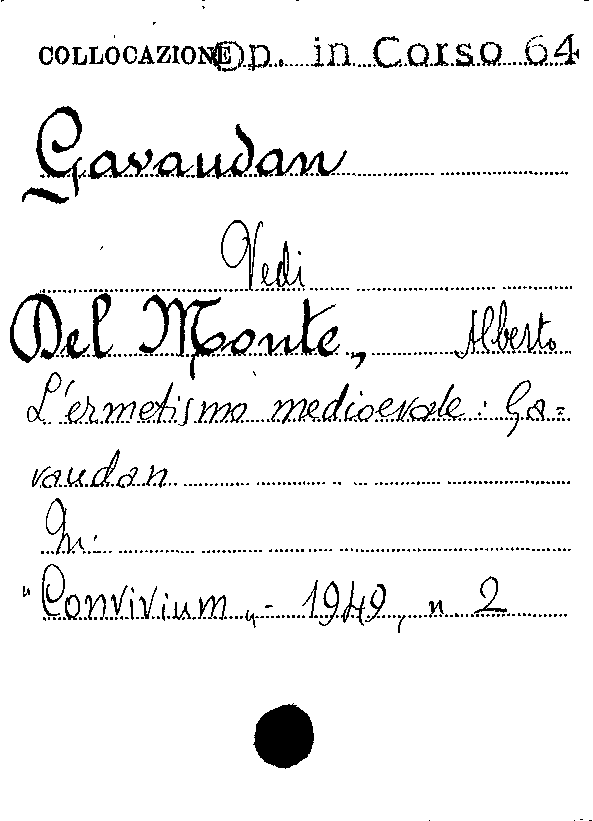 COLLOCAZIONE Op. in Corso 64
Gavaudan
Vedi
Del Monte, Alberto
L'ermetismo medioevale: Ga=
vaudan
In:
"Convivium" - 1949, n. 2